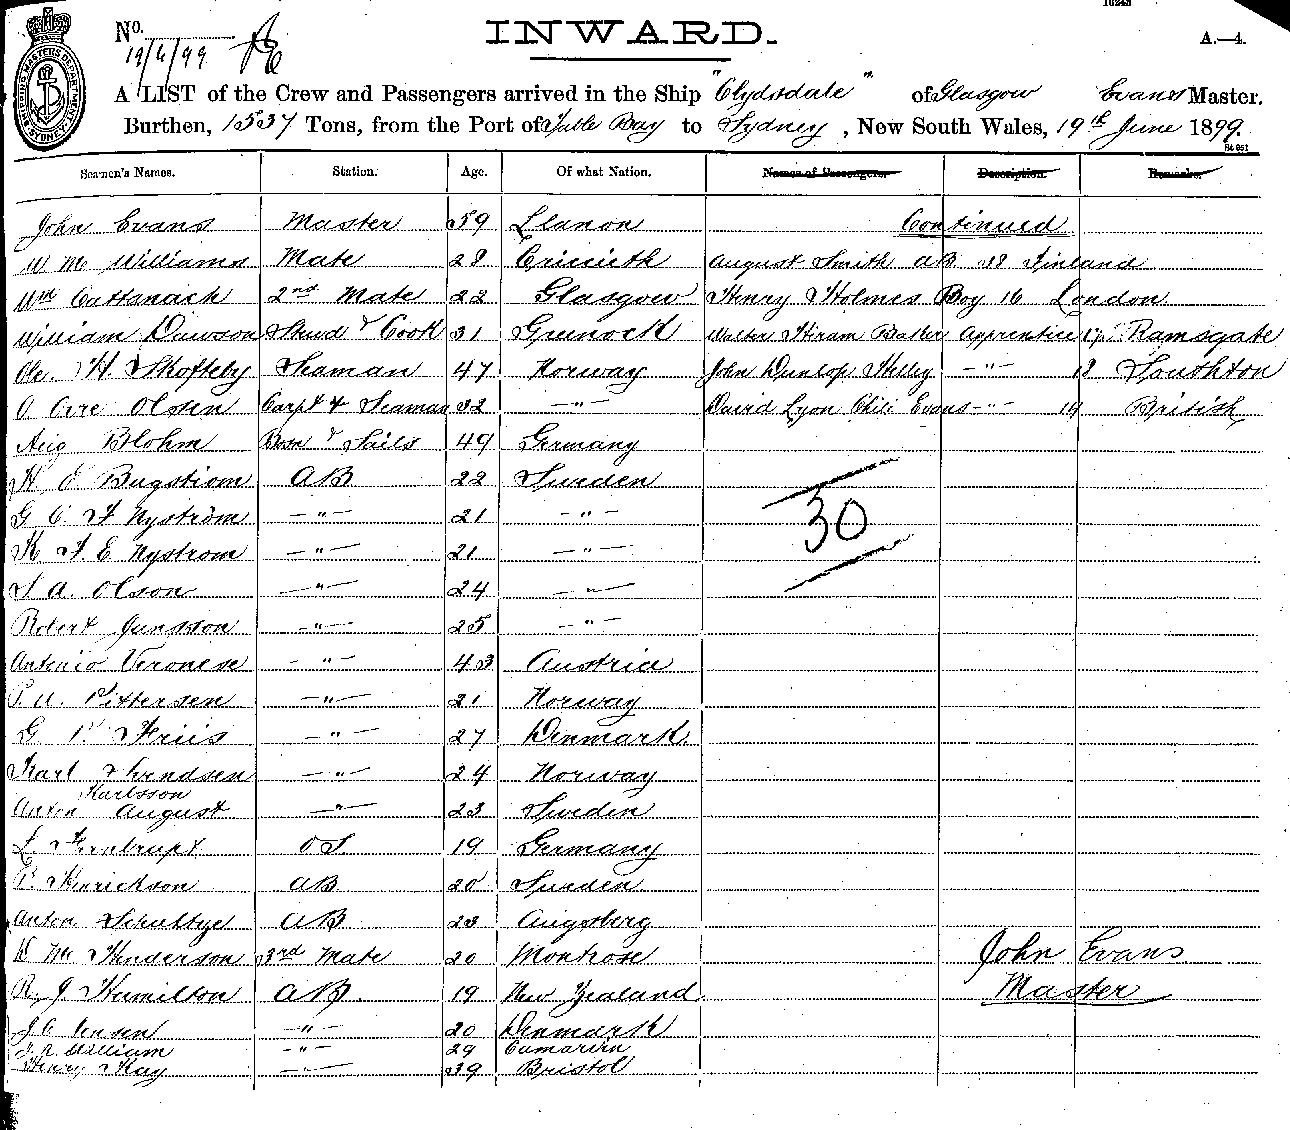 No.
19/6/99
INWARD.
A.—4.
A LIST of the Crew and Passengers arrived in the Ship "Clydsdale" of Glasgow Evans Master.
Burthen, 1537 Tons, from the Port of Table Bay to Sydney, New South Wales, 19th June 1899.
Seamen's Names. Station. Age. Of what Nation. Names of Passengers. Description. Remarks.
John Evans Master 59 Llanon Continued
W M Williams Mate 28 Criccieth August Smith AB 28 Finland
Wm Cattanach 2nd Mate 22 Glasgow Henry Holmes Boy 16 London
William Dawson Stewd & Cook 31 Greenock Walter Hiram Barber Apprentice Ramsgate
Ole H Skofteby Seaman 47 Norway John Dunlop Kelly —"— 18 Loughton
O Olsen Carpt & Seaman 32 —"— David Lyon Evans —"— British
Aug Blohm Bosn & Sails 49 Germany
H E AB 22 Sweden
G C F Nyström —"— 21 —"—
K F E Nystrom —"— 21 —"—
S A Olson —"— 24 —"—
30
Robert Jansson —"— 25 —"—
Antonio Veronese —"— 43 Austria
P. A. Pettersen —"— 21 Norway
G P Friis —"— 27 Denmark
Karl Svendsen —"— 24 Norway
Karlsson
Anton August —"— 23 Sweden
L OS 19 Germany
P. Henrickson AB 20 Sweden
Anton Schultze AB 23 Augsberg
D Mc Henderson 3rd Mate 20 Montrose
John Evans
R. J. Hamilton AB 19 New Zealand
Master
J. C. Jensen —"— 20 Denmark
William —"— 29
Henry Kay —"— 39 Bristol